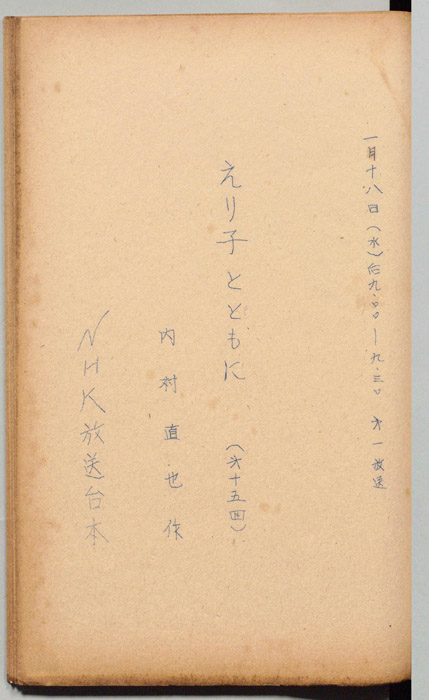 一月十八日(水)后九・〇〇―九・三〇 才一放送
えり子とともに (才十五回)
内村直也作
NHK放送台本